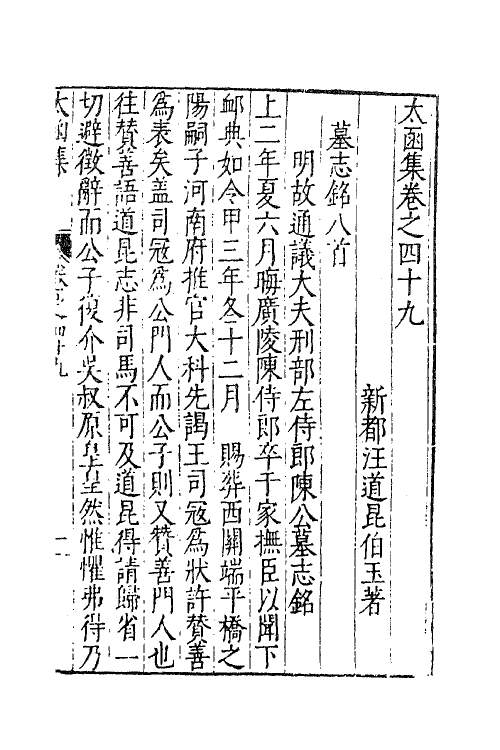 太函集卷之四十九
新都汪道昆伯玉著
墓志銘八首
明故通議大夫刑部左侍郎陳公墓志銘
上二年夏六月晦廣陵陳侍郎卒于家撫臣以聞下
䘏典如令甲三年冬十二月　賜葬西關端平橋之
陽嗣子河南府推官大科先謁王司寇爲狀許贊善
爲表矣蓋司寇爲公門人而公子則又贊善門人也
往贊善語道昆志非司馬不可及道昆得請歸省一
切避徵辭而公子復介吳叔原皇皇然惟懼弗得乃
太函集
卷之四十九
一